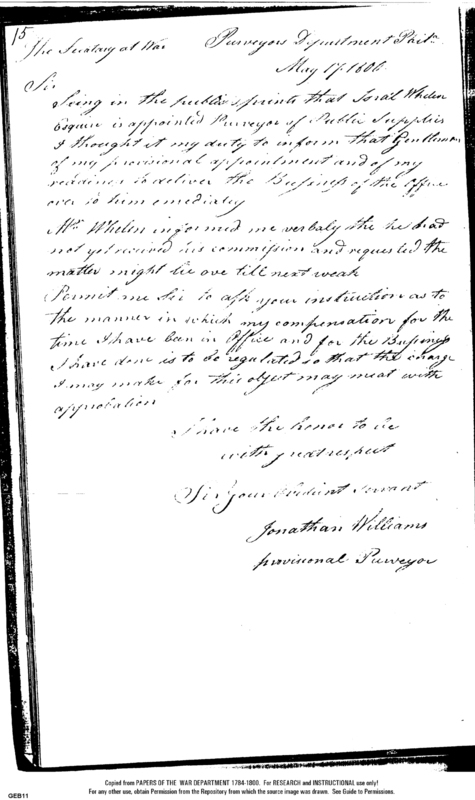 15
The Secretary at War
Purveyors Department Phila
May 17. 1800.
Sir
Seing in the public prints that Israel Whelen
Esquire is appointed Purveyor of Public Supplies
I thought it my duty to inform that Gentleman
of my provisional appointment and of my
readiness to deliver the Business of the office
over to him emediately
Mr Whelen informed me verbaly the he had
not yet received his commission and requested the
matter might lie ove till next weak
Permit me Sir to ask your instruction as to
the manner in which my compensation for the
time I have been in Office and for the Business
I have done is to be regulated so that the charge
I may make for this object may meat with
approbation
I have the honor to be
with great respect
Sir your obedient servant
Jonathan Williams
provisional Purveyor
Copied from PAPERS OF THE WAR DEPARTMENT 1784-1800. For RESEARCH and INSTRUCTIONAL use only!
For any other use, obtain Permission from the Repository from which the source image was drawn. See Guide to Permissions.
GEB11